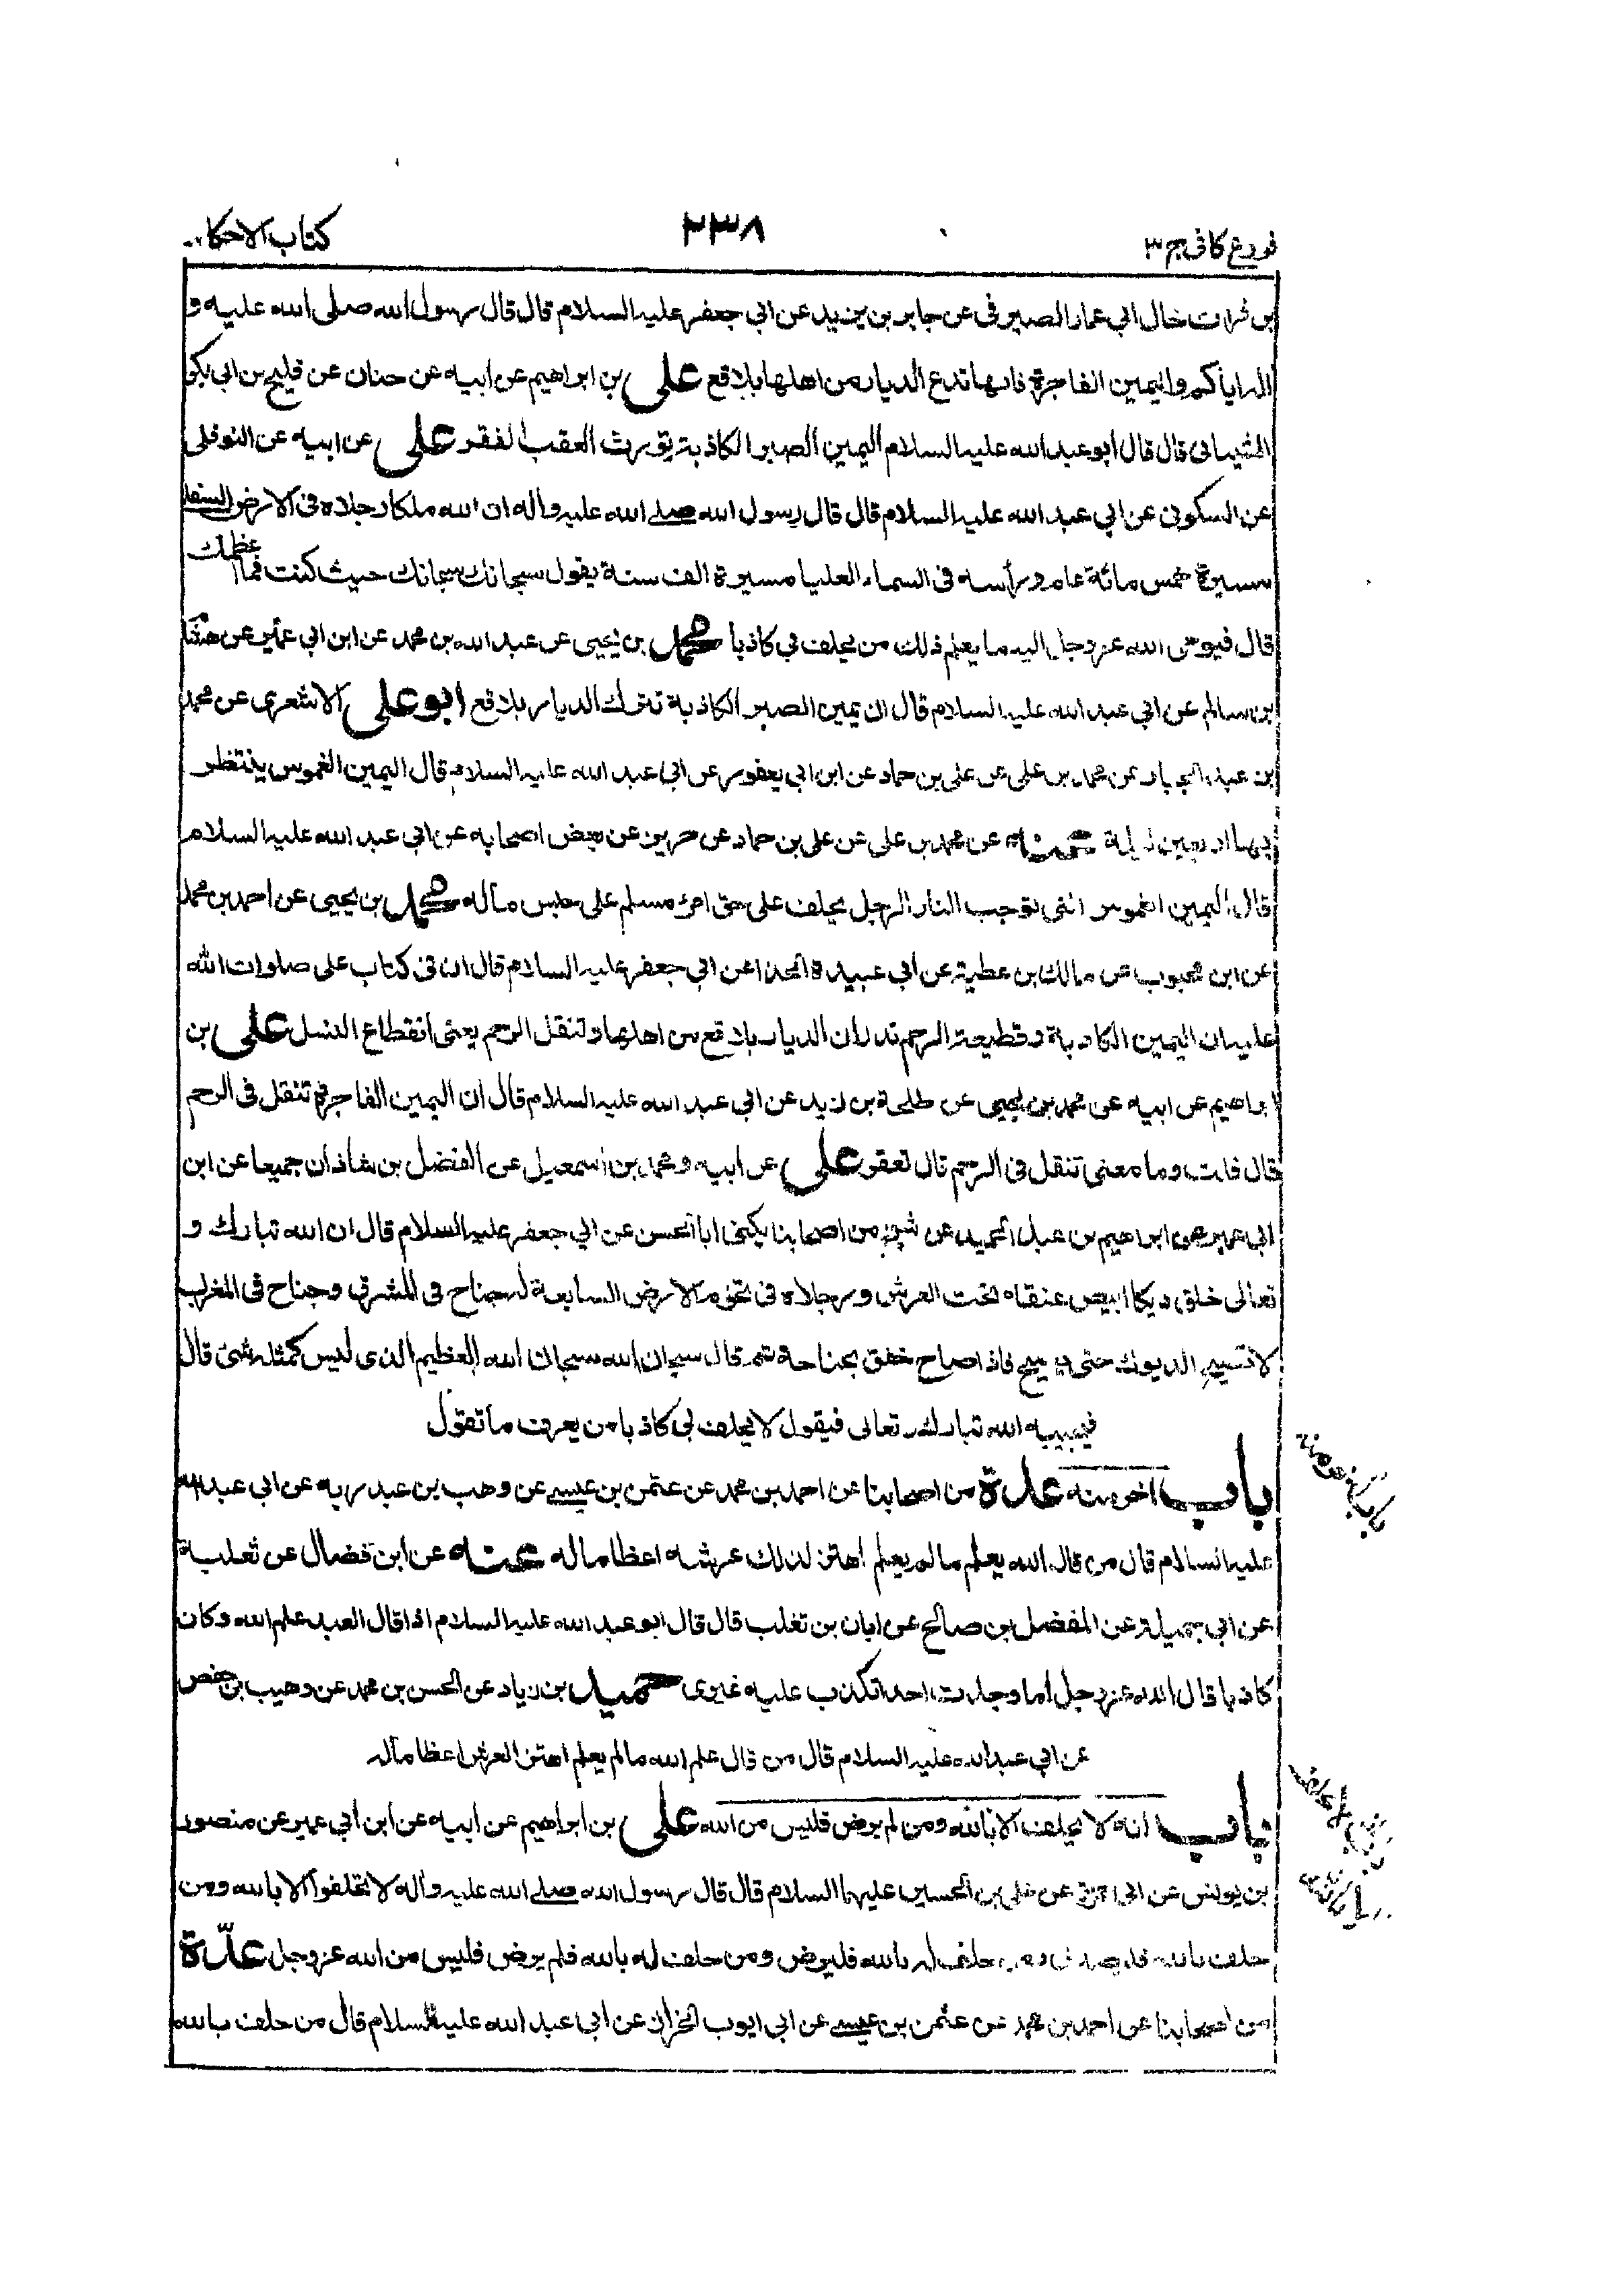 فروع كافى ج ٣
٢٣٨
كتاب الاحكا
بن فرات خال ابي عمار الصيرفى عن جابر بن يزيد عن ابي جعفر عليه السلام قال قال رسول الله صلى الله عليه و
اله اياكم واليمين الفاجرة فانها تدع الديار من اهلها بلاقع على بن ابراهيم عن ابيه عن حنان عن فليح بن ابى بكر
الشيبانى قال قال ابو عبد الله عليه السلام اليمين الصبر الكاذبة تورث العقب الفقر على عن ابيه عن النوفلى
عن السكونى عن ابي عبد الله عليه السلام قال قال رسول الله صلے الله عليه واله ان لله ملكا رجلاه فى الارض السفلى
مسيرة خمس مائة عام ورأسه فى السماء العليا مسيرة الف سنة يقول سبحانك سبحانك حيث كنت فما اعظمك
قال فيوحى الله عز وجل اليه ما يعلم ذلك من يحلف بي كاذبا محمد بن يحيى عن عبد الله بن محمد عن ابن ابي عمير عن هشام
بن سالم عن ابي عبد الله عليه السلام قال ان يمين الصبر الكاذبة تترك الديار بلاقع ابو على الاشعرى عن محمد
بن عبد الجبار عن محمد بن على عن على بن حماد عن ابن ابي يعفور عن ابي عبد الله عليه السلام قال اليمين الغموس ينتظر
بها اربعين ليلة عنه عن محمد بن على عن على بن حماد عن حريز عن بعض اصحابه عن ابي عبد الله عليه السلام
قال اليمين الغموس التى توجب النار الرجل يحلف على حق امرئ مسلم على حبس ماله محمد بن يحيى عن احمد بن محمد
عن ابن محبوب عن مالك بن عطية عن ابي عبيدة الحذا عن ابي جعفر عليه السلام قال ان فى كتاب على صلوات الله
عليه ان اليمين الكاذبة وقطيعة الرحم تذران الديار بلاقع من اهلها وتنقل الرحم يعنى انقطاع النسل على بن
ابراهيم عن ابيه عن محمد بن يحيى عن طلحة بن زيد عن ابي عبد الله عليه السلام قال ان اليمين الفاجرة تنقل فى الرحم
قال قلت وما معنى تنقل فى الرحم قال تعقر على عن ابيه ومحمد بن اسمعيل عن الفضل بن شاذان جميعا عن ابن
ابي عمير عن ابراهيم بن عبد الحميد عن شيخ من اصحابنا يكنى ابا الحسن عن ابي جعفر عليه السلام قال ان الله تبارك و
تعالى خلق ديكا ابيض عنقه تحت العرش ورجلاه فى تخوم الارض السابعة له جناح فى المشرق وجناح فى المغرب
لا تصيح الديوك حتى يصيح فاذا صاح خفق بجناحه ثم قال سبحان الله سبحان الله العظيم الذى ليس كمثله شئ قال
فيجيبه الله تبارك وتعالى فيقول لا يحلف بى كاذبا من يعرف ما تقول
باب اخر منه عدة من اصحابنا عن احمد بن محمد عن عثمن بن عيسے عن وهب بن عبد ربه عن ابي عبد الله
عليه السلام قال من قال الله يعلم ما لم يعلم اهتز لذلك عرشه اعظاما له عنه عن ابن فضال عن ثعلبة
عن ابي جميلة عن المفضل بن صالح عن ابان بن تغلب قال قال ابو عبد الله عليه السلام اذا قال العبد علم الله وكان
كاذبا قال الله عز وجل اما وجدت احدا تكذب عليه غيرى حميد بن زياد عن الحسن بن محمد عن وهيب بن حفص
عن ابي عبد الله عليه السلام قال من قال علم الله ما لم يعلم اهتز العرش اعظاما له
باب انه لا يحلف الا بالله ومن لم يرض فليس من الله على بن ابراهيم عن ابيه عن ابن ابي عمير عن منصور
بن يونس عن ابى حمزة عن على بن الحسين عليهما السلام قال قال رسول الله صلے الله عليه واله لا تحلفوا الا بالله ومن
حلف بالله فليصدق ومن حلف له بالله فليرض ومن حلف له بالله فلم يرض فليس من الله عز وجل عدّة
من اصحابنا عن احمد بن محمد عن عثمن بن عيسے عن ابى ايوب الخزاز عن ابى عبد الله عليه السلام قال من حلف بالله
باب آخر منه